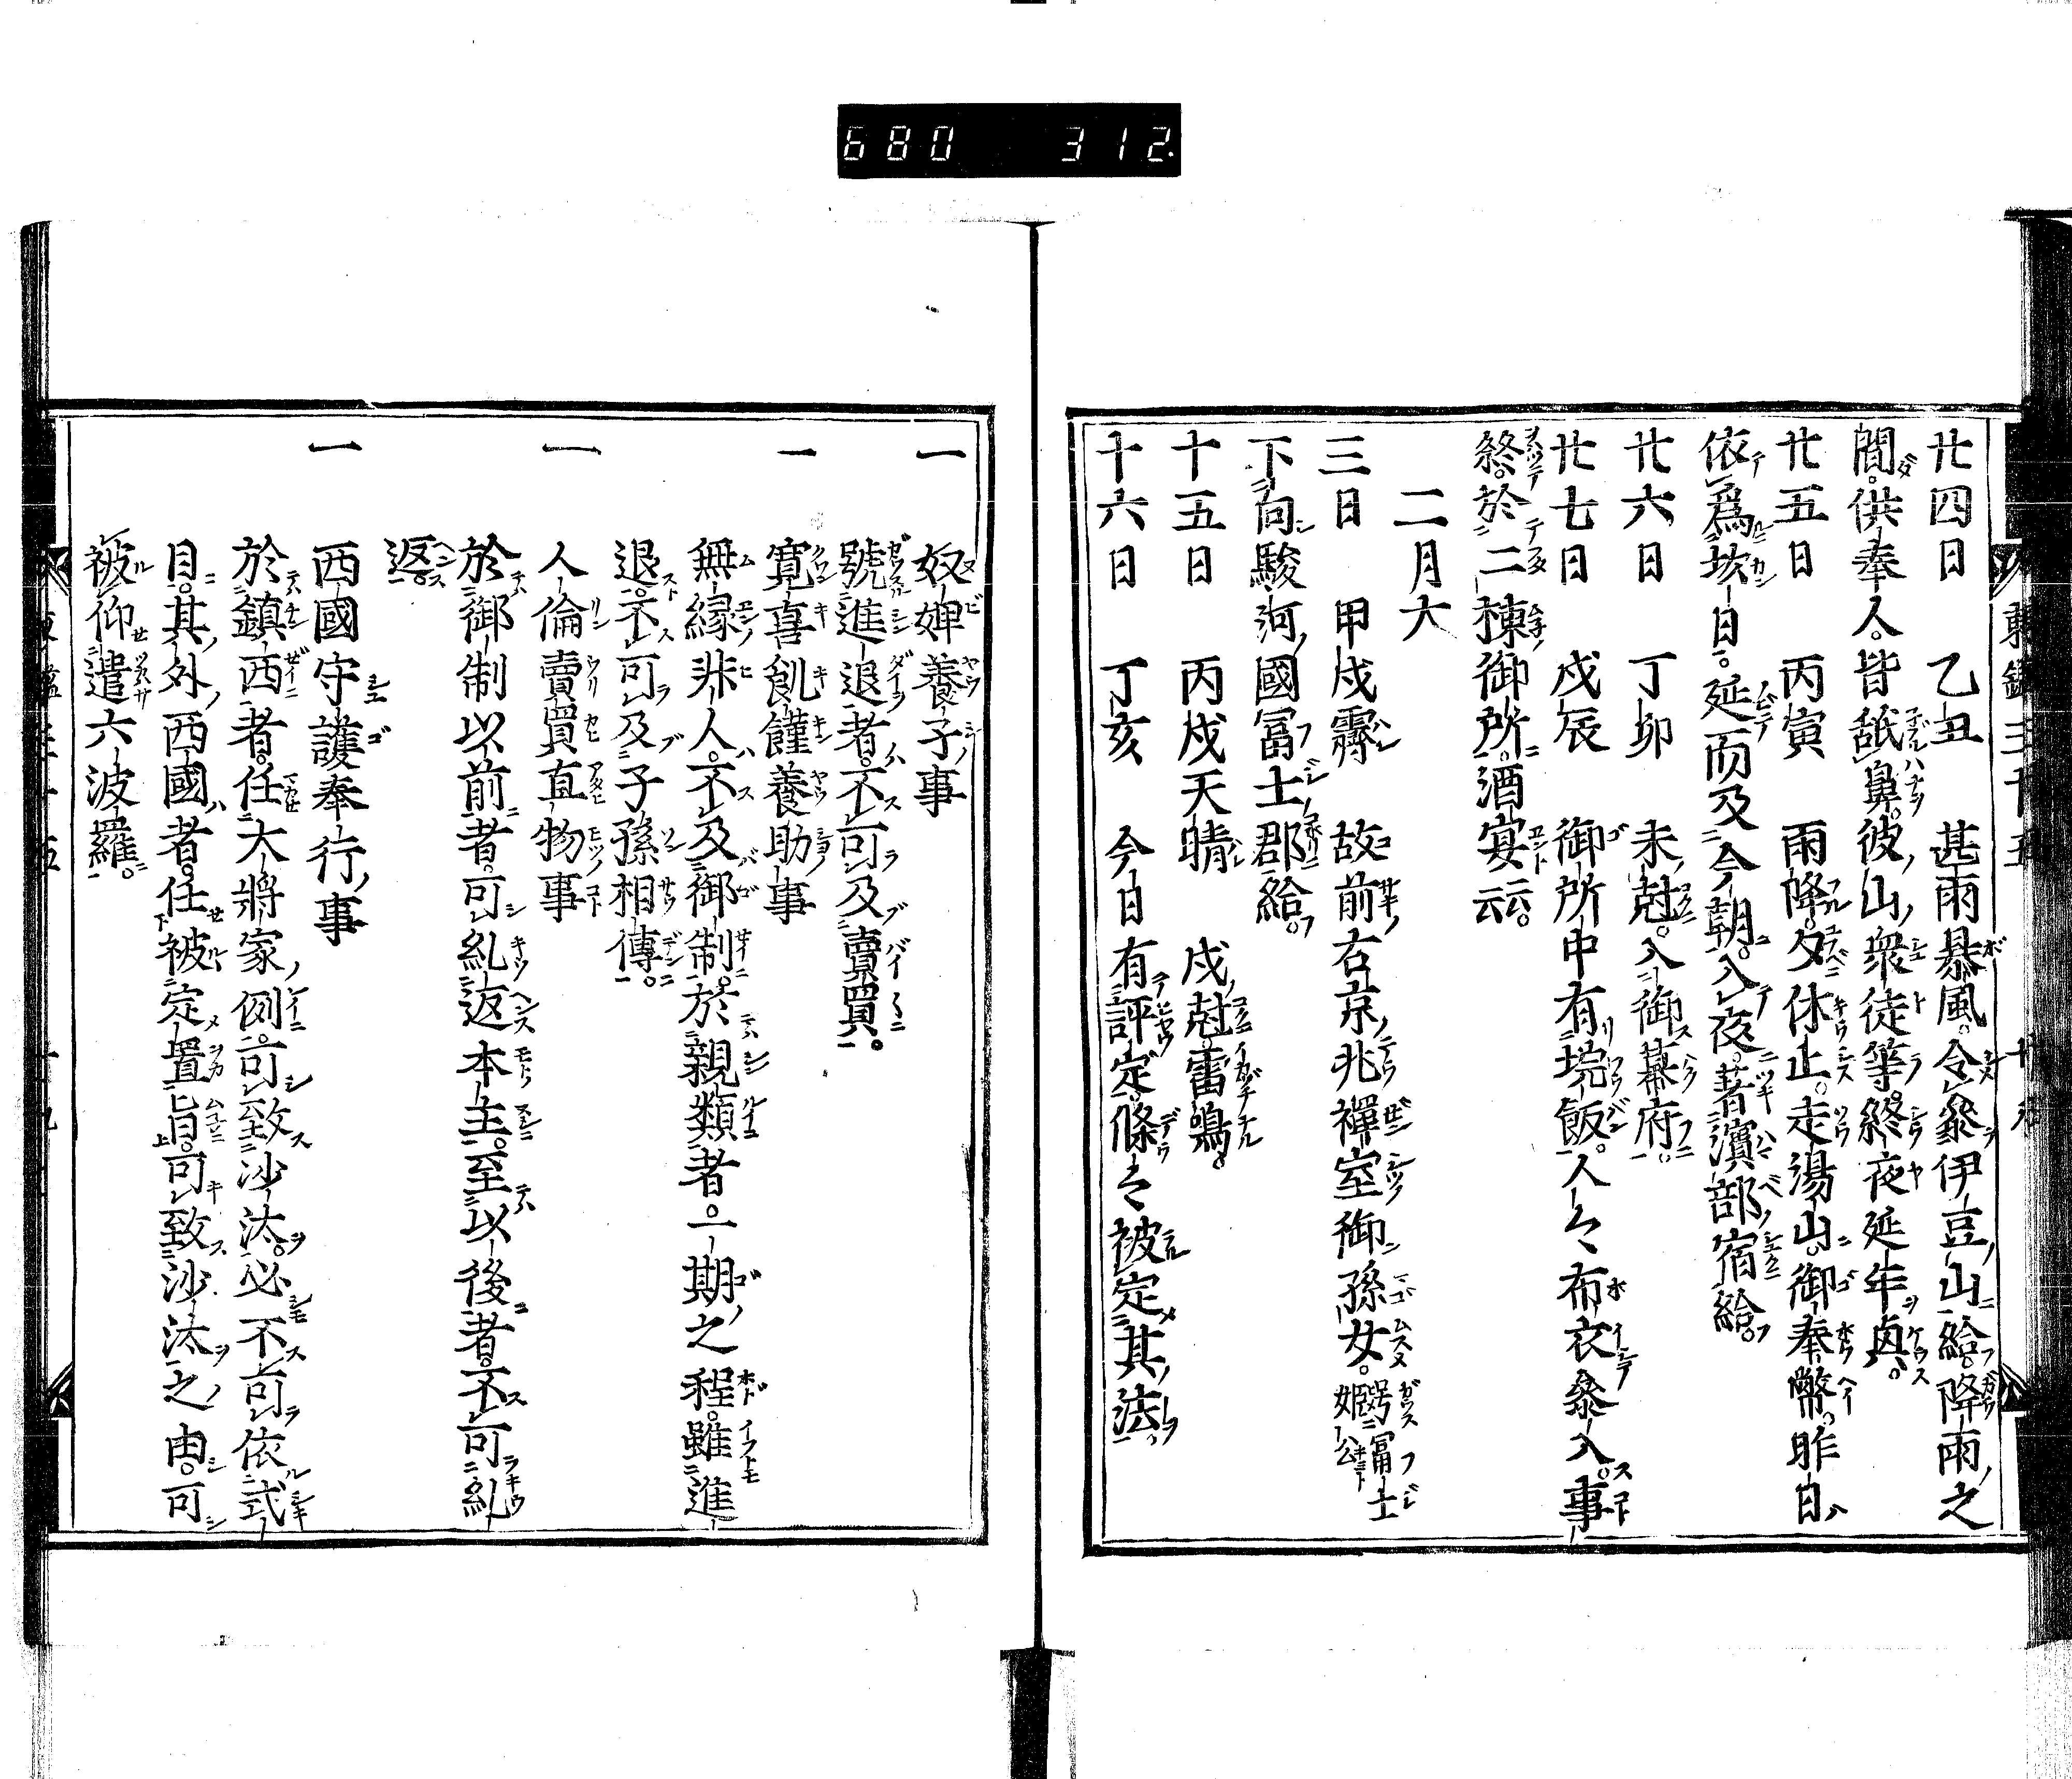 680 312
廿四日 乙丑 甚雨暴風。令參伊豆山給。降雨之
間。供奉人。皆舐鼻。彼山衆徒等。終夜延年興。
廿五日 丙寅 雨降。夕休止。走湯山。御奉幣。昨日
依爲坎日。延而及今朝。入夜。著濵部宿給。
廿六日 丁卯 未尅。入御幕府。
廿七日 戊辰 御所中有埦飯。人々布衣參入。事
終。於二棟御所。酒宴云云。
二月大
三日 甲戌霽 故前右京兆禪室御孫女。號冨士姬公
下向駿河國冨士郡給。
十五日 丙戌天晴 戌尅。雷鳴。
十六日 丁亥 今日有評定。條々被定其法。
一 奴婢養子事
號進退者。不可及賣買。
一 寛喜飢饉養助事
無緣非人。不及御制。於親類者。一期之程。雖進
退。不可及子孫相傳。
一 人倫賣買直物事
於御制以前者。可糺返本主。至以後者。不可糺
返。
一 西國守護奉行事
於鎮西者。任大將家例。可致沙汰。必不可依式
目。其外西國者。任被定置旨。可致沙汰之由。可
被仰遣六波羅。